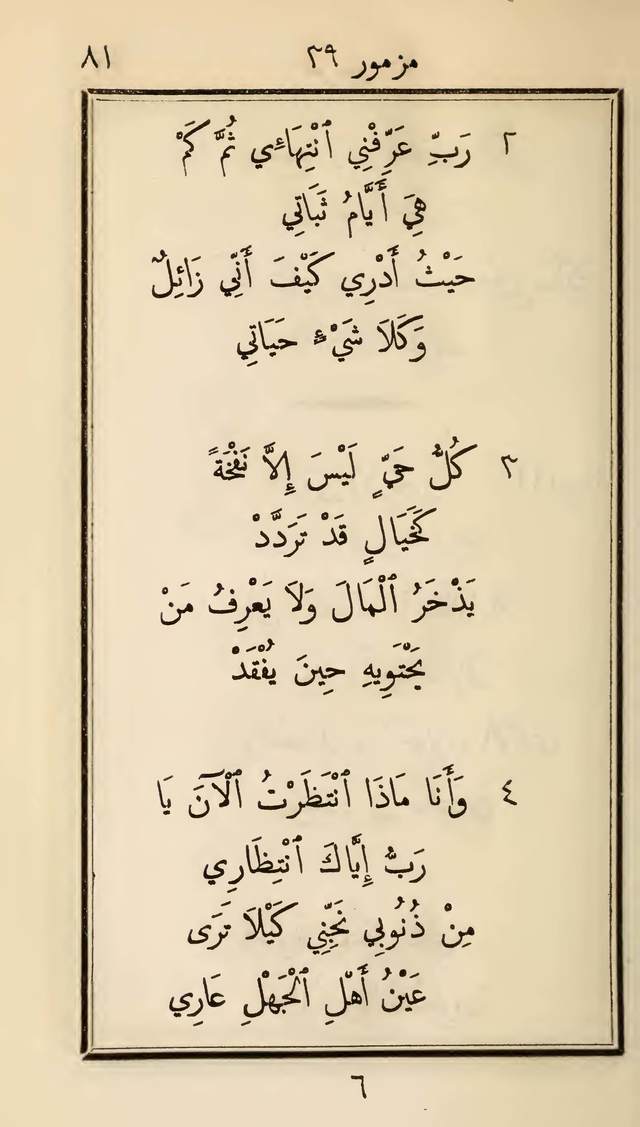 مزمور ٣٩ ٨١
٢ رَبِّ عَرِّفْنِي ٱنْتِهَاءِي ثُمَّ كَمْ
هِيَ أَيَّامُ ثَبَاتِي
حَيْثُ أَدْرِي كَيْفَ أَنِّي زَائِلٌ
وَكَلَا شَيْءٍ حَيَاتِي
٣ كُلُّ حَيٍّ لَيْسَ إِلاَّ نَفْخَةً
كَخَيَالٍ قَدْ تَرَدَّدْ
يَذْخَرُ ٱلْمَالَ وَلاَ يَعْرِفُ مَنْ
يَحْتَوِيهِ حِينَ يُفْقَدْ
٤ وَأَنَا مَاذَا ٱنْتَظَرْتُ ٱلْآنَ يَا
رَبُّ إِيَّاكَ ٱنْتِظَارِي
مِنْ ذُنُوبِي نَجِّنِي كَيْلَا تَرَى
عَيْنُ أَهْلِ ٱلْجَهْلِ عَارِي
٦